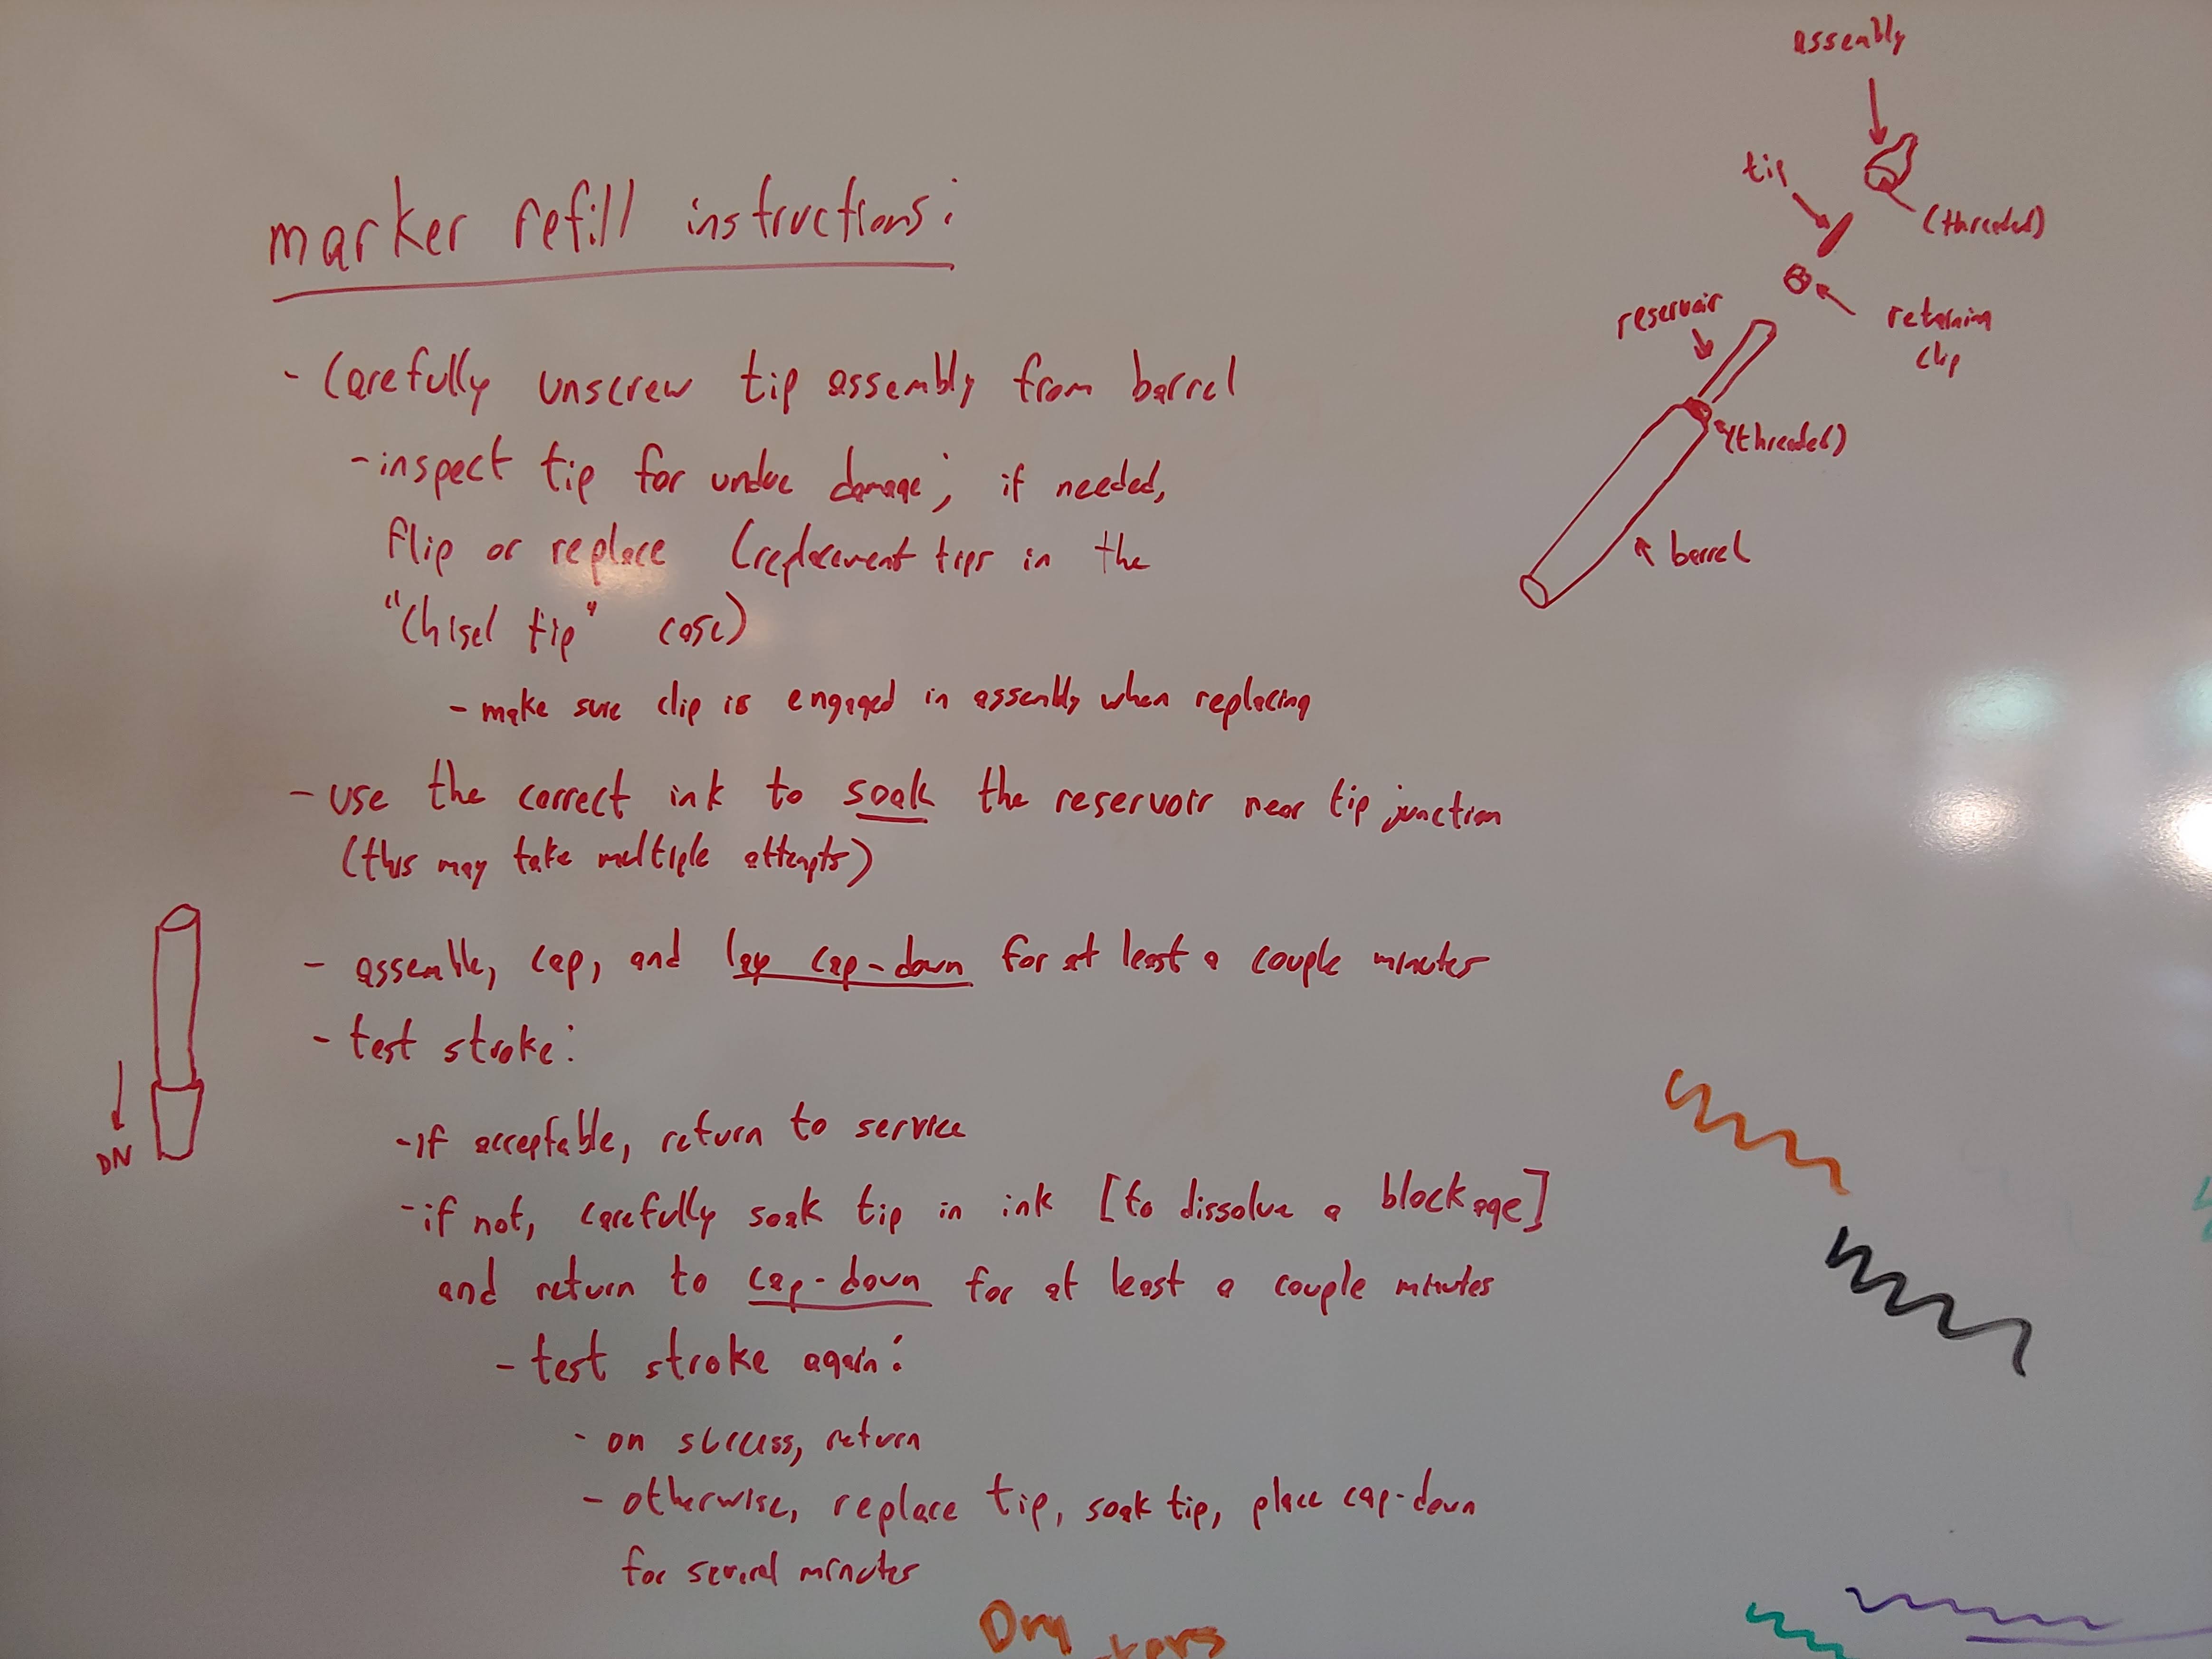 marker refill instructions:
- Carefully unscrew tip assembly from barrel
- inspect tip for undue damage; if needed,
flip or replace (replacement tips in the
"Chisel tip" case)
- make sure clip is engaged in assembly when replacing
- use the correct ink to soak the reservoir near tip junction
(this may take multiple attempts)
- assemble, cap, and lay cap-down for at least a couple minutes
- test stroke:
- if acceptable, return to service
- if not, carefully soak tip in ink [to dissolve a blockage]
and return to cap-down for at least a couple minutes
- test stroke again:
- on success, return
- otherwise, replace tip, soak tip, place cap-down
for several minutes
assembly
tip
(threaded)
reservoir
retaining
clip
(threaded)
barrel
DN
Dry